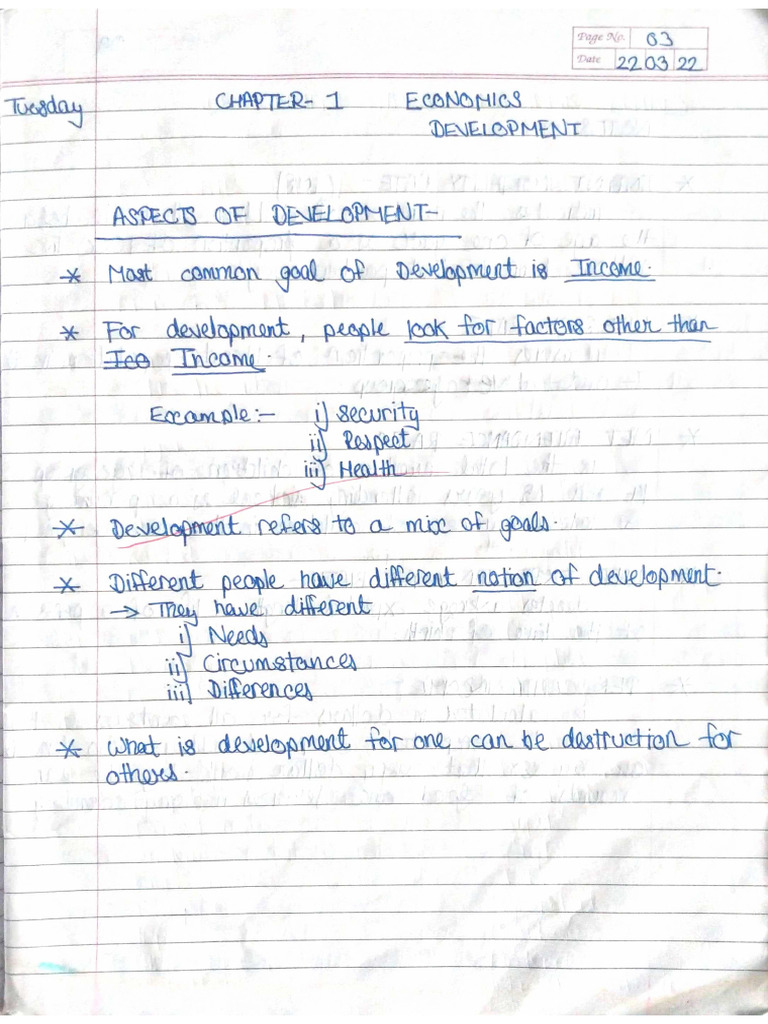 Page No. 03
Date 22 03 22
Tuesday CHAPTER- 1 ECONOMICS
DEVELOPMENT
ASPECTS OF DEVELOPMENT-
* Most common goal of Development is Income.
* For development, people look for factors other than
Ico Income.
Example:- i) Security
ii) Respect
iii) Health
* Development refers to a mix of goals.
* Different people have different notion of development.
→ They have different
i) Needs
ii) Circumstances
iii) Differences
* What is development for one, can be destruction for
others.